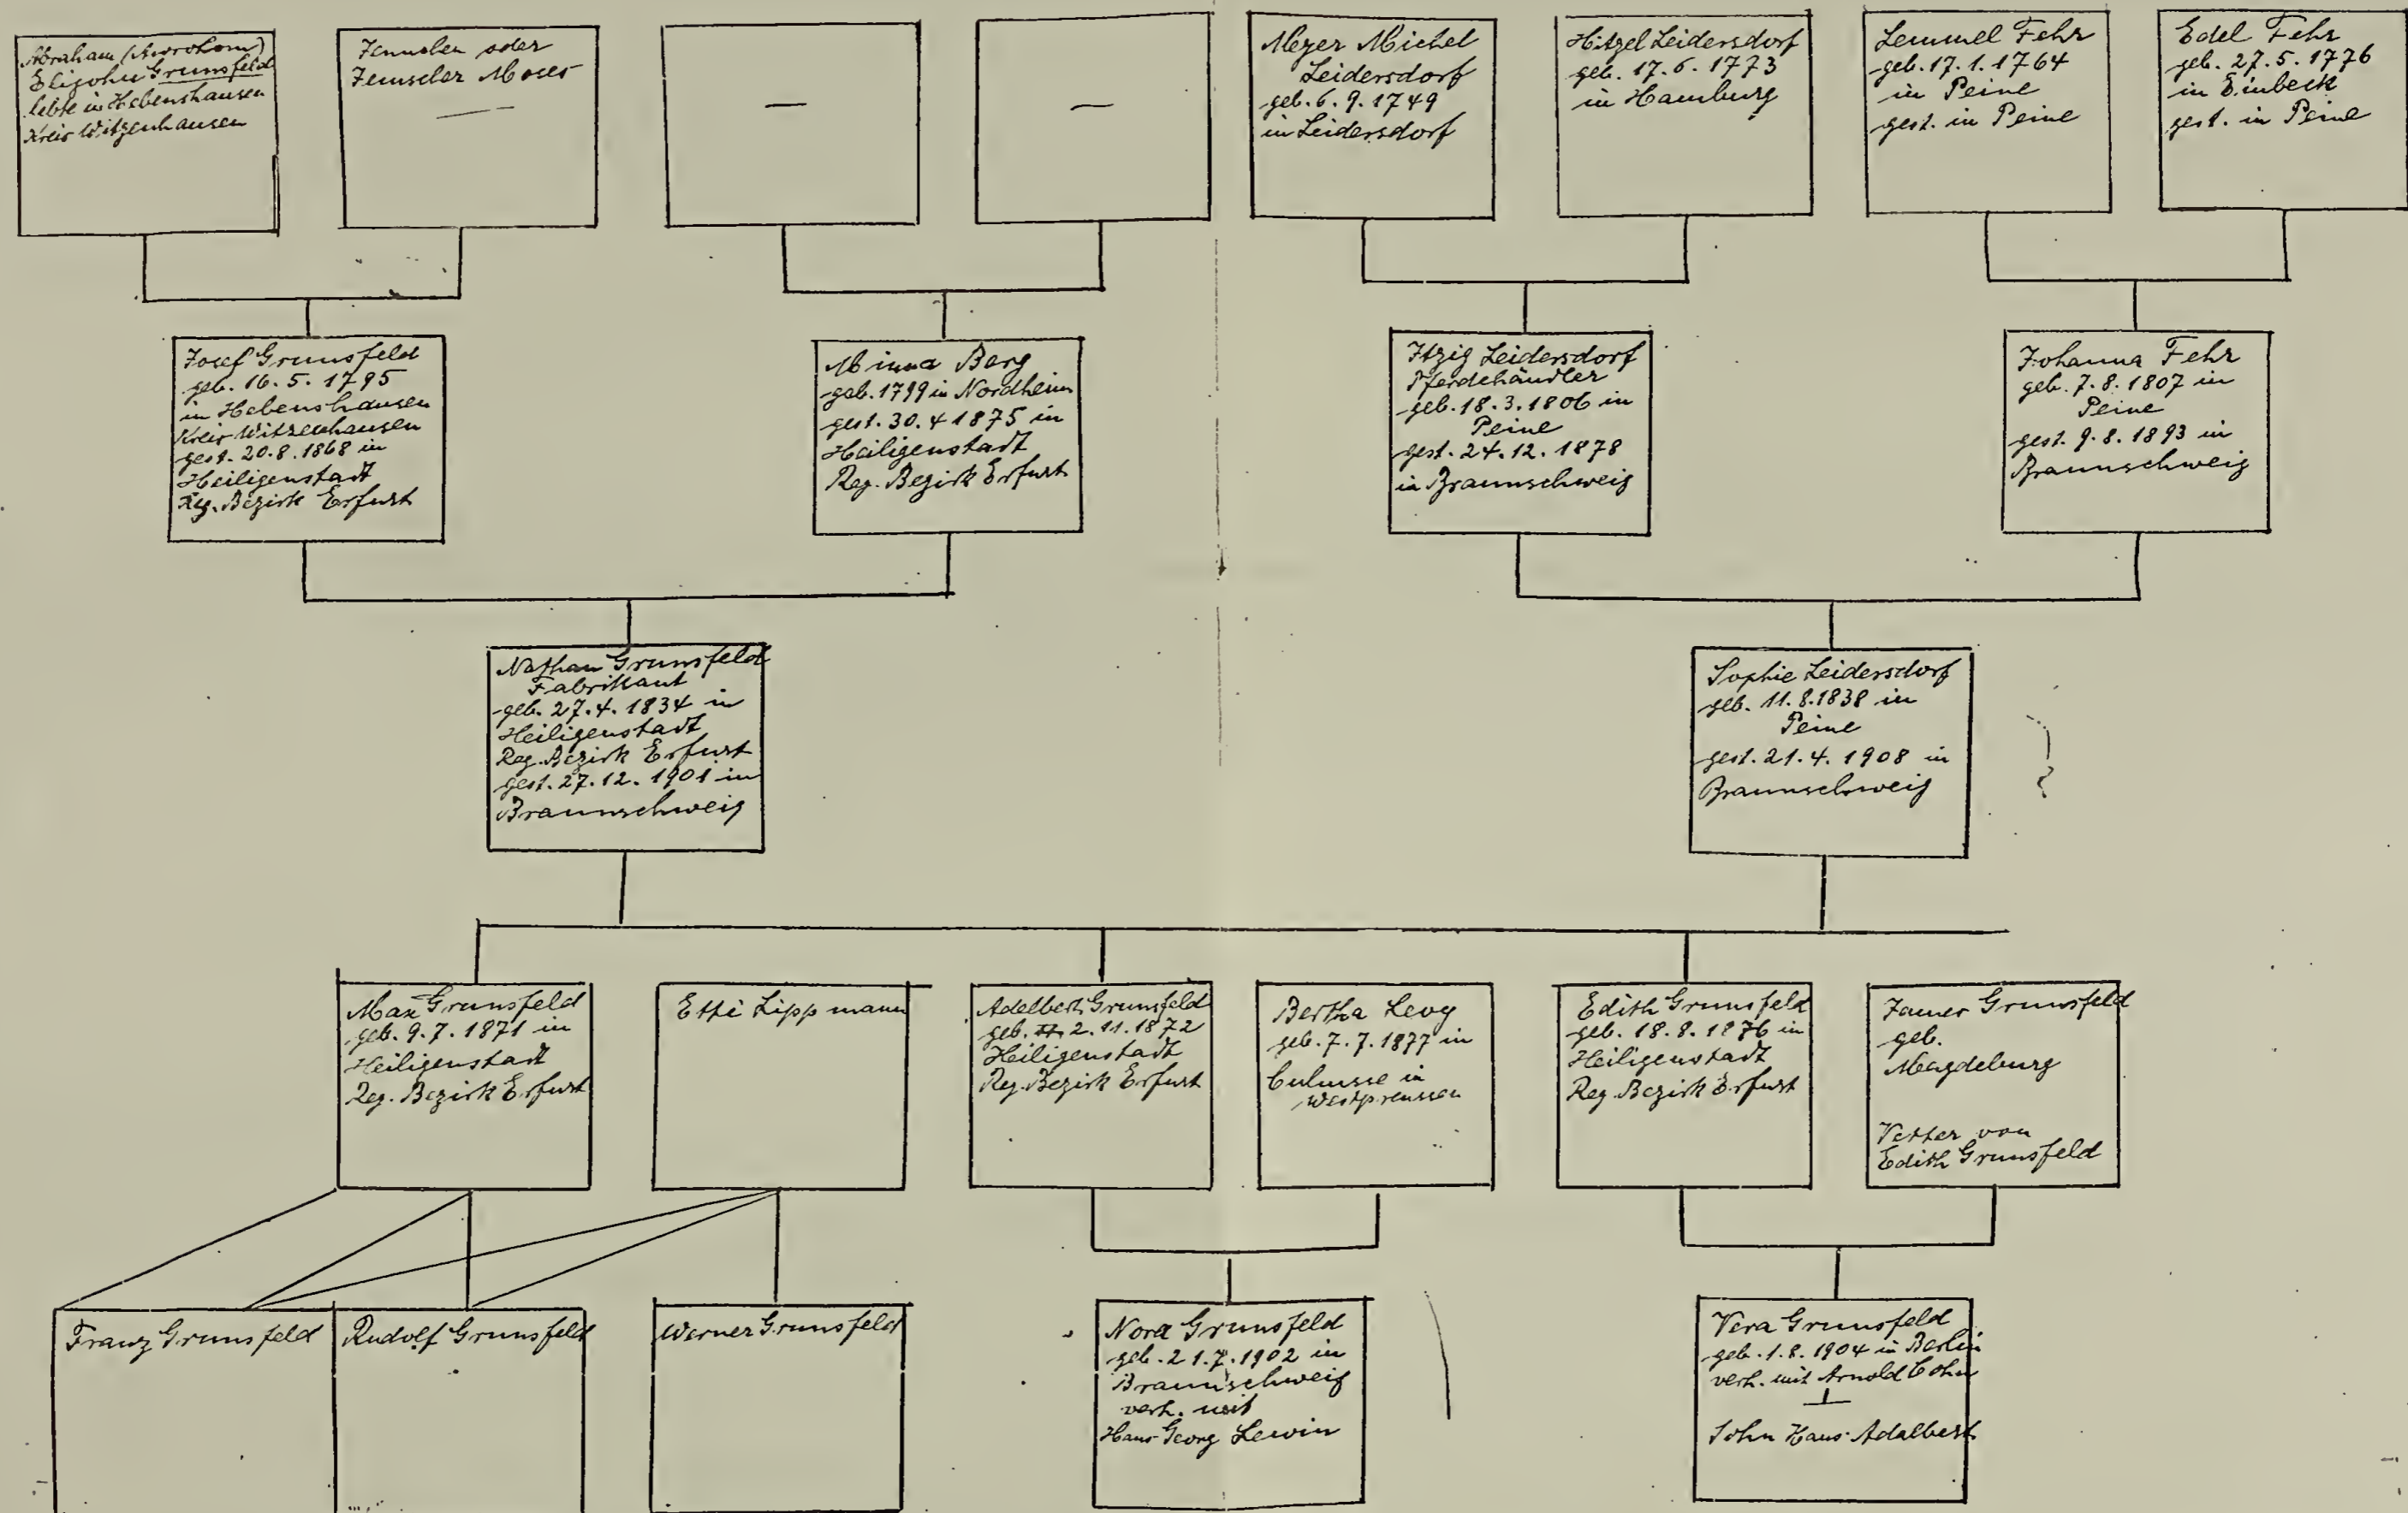 Abraham (Aworohom)
Elijohu Grunsfeld
lebte in Hebenshausen
Kreis Witzenhausen
oder
Moses
—
—
—
Meyer Michel
Leidersdorf
geb. 6. 9. 1749
in Leidersdorf
Hitzel Leidersdorf
geb. 17. 6. 1773
in Hamburg
Lemmel Fehr
geb. 17. 1. 1764
in Peine
gest. in Peine
Edel Fehr
geb. 27. 5. 1776
in Einbeck
gest. in Peine
Josef Grunsfeld
geb. 16. 5. 1795
in Hebenshausen
Kreis Witzenhausen
gest. 20. 8. 1868 in
Heiligenstadt
Reg. Bezirk Erfurt
Minna Berg
geb. 1799 in Nordheim
gest. 30. 4 1875 in
Heiligenstadt
Reg. Bezirk Erfurt
Itzig Leidersdorf
Pferdehändler
geb. 18. 3. 1806 in
Peine
gest. 24. 12. 1878
in Braunschweig
Johanna Fehr
geb. 7. 8. 1807 in
Peine
gest. 9. 8. 1893 in
Braunschweig
Nathan Grunsfeld
Fabrikant
geb. 27. 4. 1834 in
Heiligenstadt
Reg. Bezirk Erfurt
gest. 27. 12. 1901 in
Braunschweig
Sophie Leidersdorf
geb. 11. 8. 1838 in
Peine
gest. 21. 4. 1908 in
Braunschweig
Max Grunsfeld
geb. 9. 7. 1871 in
Heiligenstadt
Reg. Bezirk Erfurt
Lippmann
Adelbert Grunsfeld
geb. 2. 11. 1872
Heiligenstadt
Reg. Bezirk Erfurt
Bertha Levy
geb. 7. 7. 1877 in
Culmsee in
Westpreussen
Edith Grunsfeld
geb. 18. 8. 1876 in
Heiligenstadt
Reg. Bezirk Erfurt
James Grunsfeld
geb.
Magdeburg
Vetter von
Edith Grunsfeld
Franz Grunsfeld
Rudolf Grunsfeld
Werner Grunsfeld
Nora Grunsfeld
geb. 21. 7. 1902 in
Braunschweig
verh. mit
Hans Georg Lewin
Vera Grunsfeld
geb. 1. 8. 1904 in Berlin
verh. mit Arnold Cohn
Sohn Hans-Adalbert